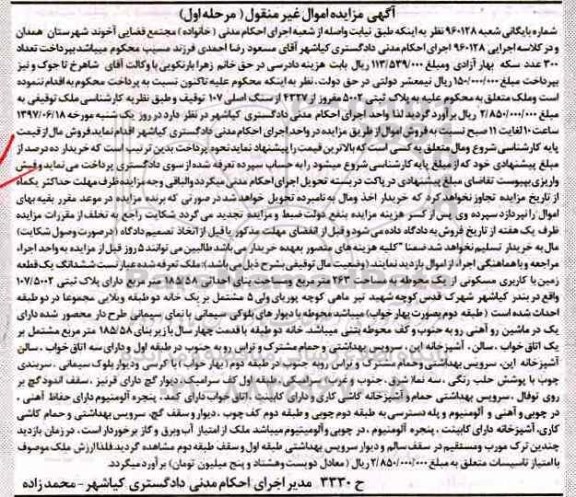 آگهی مزایده اموال غیر منقول ( مرحله اول)
شماره بایگانی شعبه ۹۶۰۱۲۸ نظر به اینکه طبق نیابت واصله از شعبه اجرای احکام مدنی ( خانواده ) مجتمع قضایی آخوند شهرستان همدان
و در کلاسه اجرایی ۹۶۰۱۲۸ اجرای احکام مدنی دادگستری کیاشهر آقای مسعود رضا احمدی فرزند مسیب محکوم میباشد بپرداخت تعداد
۳۰۰ عدد سکه بهار آزادی ومبلغ ۱۱۳/۵۳۹/۰۰۰ ریال بابت هزینه دادرسی در حق خانم زهرا یارتکویی با وکالت آقای شاهرخ تا جوک و نیز
بپرداخت مبلغ ۱۵۰/۰۰۰/۰۰۰ ریال نیمعشر دولتی در حق دولت، نظر به اینکه محکوم علیه تاکنون نسبت به پرداخت محکوم به اقدام ننموده
است وملک متعلق به محکوم علیه به پلاک ثبتی ۵۰۰۲ مفروز از ۴۳۴۷ از سنگ اصلی ۱۰۷ توقیف و طبق نظریه کارشناسی ملک توقیفی به
مبلغ ۲/۸۵۰/۰۰۰/۰۰۰ ریال برآورد گردید لذا واحد اجرای احکام مدنی دادگستری کیاشهر در نظر دارد در روز یک شنبه مورخه ۱۳۹۷/۰۶/۱۸
ساعت ۱۰ لغایت ۱۱ صبح نسبت به فروش اموال از طریق مزایده در واحد اجرای احکام مدنی دادگستری کیاشهر اقدام نماید.فروش مال از قیمت
پایه کارشناسی شروع ومال متعلق به کسی است که بالاترین قیمت را پیشنهاد نماید نحوه پرداخت بدین ترتیب است که خریدار ده درصد از
مبلغ پیشنهادی خود که از مبلغ پایه کارشناسی شروع میشود را به حساب سپرده تعرفه شده از سوی دادگستری پرداخت می نماید و فیش
واریزی بپیوست تقاضای مبلغ پیشنهادی در پاکت دربسته تحویل اجرای احکام مدنی میگردد والباقی وجه مزایده ظرف مهلت حداکثر یکماه
از تاریخ مزایده تجاوز نخواهد کرد که خریدار اخذ ومال به نامبرده تحویل خواهد شد در صورتی که برنده مزایده در موعد مقرر بقیه بهای
اموال را نپردازد سپرده وی پس از کسر هزینه مزایده بنفع دولت ضبط و مزایده تجدید می گردد شکایت راجع به تخلف از مقررات مزایده
ظرف یک هفته از تاریخ فروش به دادگاه داده می شود و قبل از انقضای مهلت مذکور یا قبل از اتخاذ تصمیم دادگاه ( در صورت وصول شکایت)
مال به خریدار تسلیم نخواهد شد ضمنا "کلیه هزینه های متصور بعهده خریدار می باشد طالبین می توانند ۵ روز قبل از مزایده به واحد اجراء
مراجعه و با هماهنگی اجراء از اموال بازدید نمایند. (وضعیت مال توقیفی بشرح ذیل می باشد): ملک تعرفه شده عبارتست ششدانگ یک قطعه
زمین با کاربری مسکونی از یک محوطه به مساحت ۲۶۳ متر مربع وساخت بنای احداثی ۱۸۵/۵۸ متر مربع دارای پلاک ثبتی ۱۰۷/۵۰۰۲
واقع در بندر کیاشهر شهرک قدس کوچه شهید تیر ماهی کوچه پوریای ولی ۵ مشتمل بر یک خانه دو طبقه ویلایی مجموعا در دو طبقه
احداث شده است ( طبقه دوم بصورت بهار خواب) میباشد محوطه با دیوار های بلوکی سیمانی با نمای سیمانی طرح دار محصور شده دارای
یک در ماشین رو آهنی رو به جنوب و کف محوطه بتنی میباشد. خانه دو طبقه با قدمت چهار سال با زیربنای ۱۸۵/۵۸ متر مربع مشتمل بر
یک اتاق خواب ، سالن ، آشپزخانه اپن، سرویس بهداشتی و حمام مشترک و تراس رو به جنوب در طبقه اول و دارای سه اتاق خواب ، سالن
آشپزخانه اپن، سرویس بهداشتی وحمام مشترک و تراس رو به جنوب در طبقه دوم ( بهار خواب) با کرسی و دیوار بلوک سیمانی ، سربندی
چوب با پوشش حلب رنگی ، سه نما شرق، جنوب و غرب سرامیکی، طبقه اول کف سرامیک و دیوار گچ دارای قرنیز ، سقف اندود گچ بر
روی توفال ، سرویس بهداشتی حمام و آشپزخانه کاشی کاری و دارای کابینت ، اتاق خواب دارای کمد، پنجره آلومنیوم دارای حفاظ آهنی ،
در چوبی و آهنی و آلومنیوم و پله دسترسی به طبقه دوم چوبی و طبقه دوم کف چوب ، دیوار و سقف گچ، سرویس بهداشتی و حمام کاشی
کاری، آشپزخانه دارای کابینت ، پنجره آلومنیوم ، در چوبی وآلومنیوم میباشد ملک از امتیاز آب وبرق و گاز برخوردار است، در زمان بازدید
چندین ترک مورب ومستقیم در سقف سالم و دیوار سرویس بهداشتی طبقه اول و سقف طبقه دوم مشاهده گردید.فلذا ارزش ملک موصوف
با امتیاز تاسیسات متعلق به مبلغ ۲/۸۵۰/۰۰۰/۰۰۰ ریال (معادل دویست وهشتاد و پنج میلیون تومان) برآورد میگردد.
ح ۳۳۳۰ مدیر اجرای احکام مدنی دادگستری کیاشهر - محمدزاده